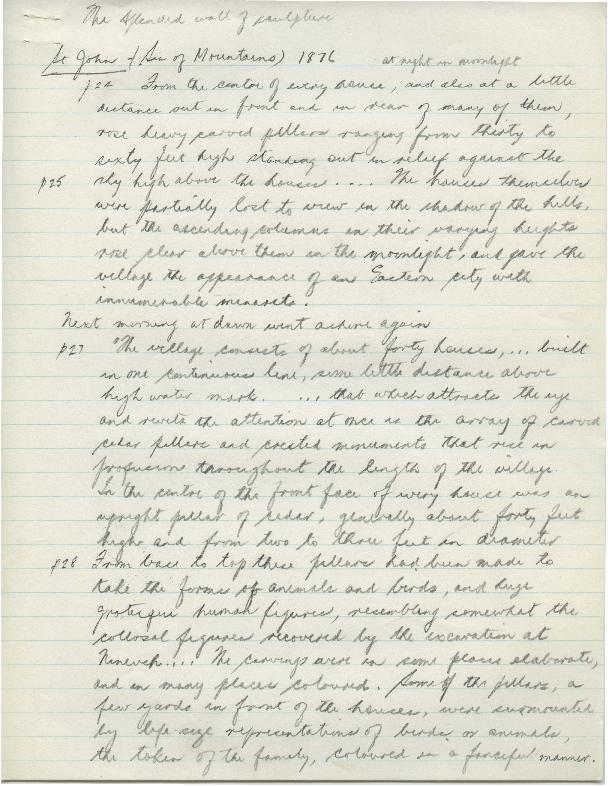 The splendid wall of sculpture
St John (Sea of Mountains) 1876 at night in moonlight
p24 From the centre of every house, and also at a little
distance out in front and in rear of many of them,
rose heavy carved pillars ranging from thirty to
sixty feet high standing out in relief against the
p25 sky high above the houses .... The houses themselves
were partially lost to view in the shadow of the hills,
but the ascending columns in their varying heights
rose clear above them in the moonlight, and gave the
village the appearance of an Eastern city with
innumerable minarets.
Next morning at dawn went ashore again
p27 "The village consists of about forty houses, ... built
in one continuous line, some little distance above
high water mark. ... that which attracts the eye
and rivets the attention at once is the array of carved
cedar pillars and crested monuments that rise in
profusion throughout the length of the village.
In the centre of the front face of every house was an
upright pillar of cedar, generally about forty feet
high and from two to three feet in diameter
p28 From base to top these pillars had been made to
take the forms of animals and birds, and huge
grotesque human figures, resembling somewhat the
collosal figures recovered by the excavation at
Nineveh.... The carvings were in some places elaborate,
and in many places coloured. Some of the pillars, a
few yards in front of the houses, were surmounted
by life-size representations of birds or animals,
the token of the family, coloured in a fanciful manner.